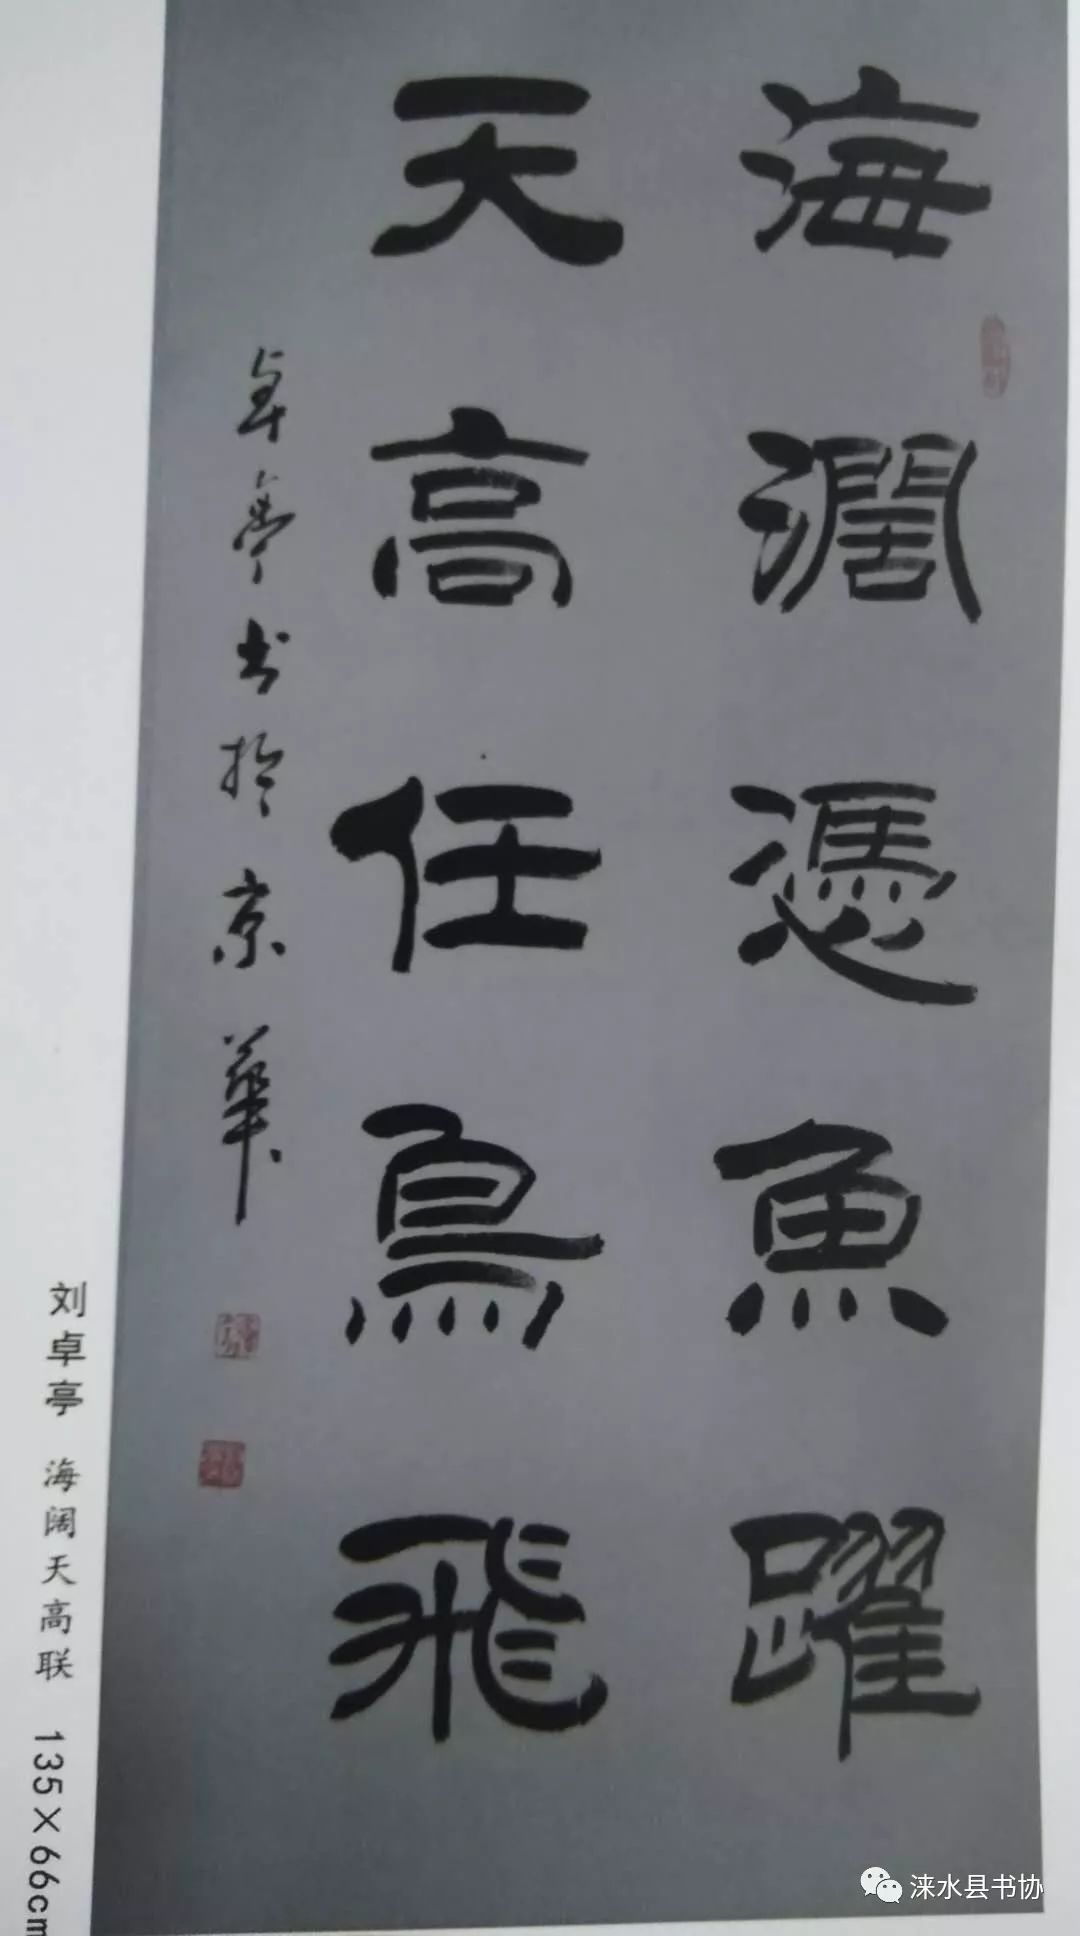 海濶憑魚躍
天高任鳥飛
卓亭书於京華
刘卓亭 海阔天高联 135×66cm
涞水县书协